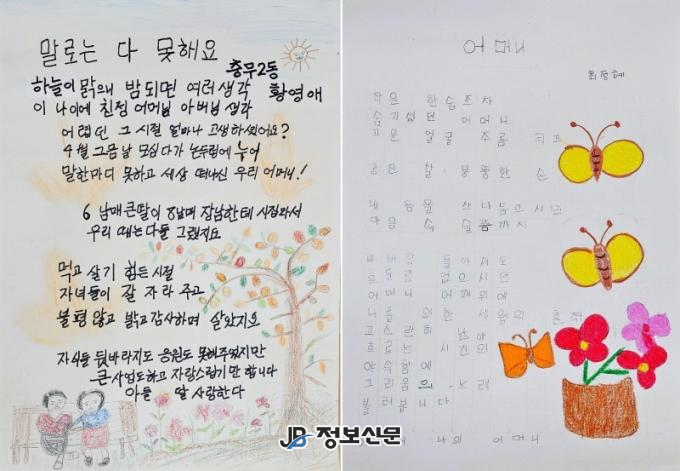 말로는 다 못해요
충무2동
황영애
하늘이 맑으니 밤되면 여러생각
이 나이에 친정 어머님 아버님 생각
어렵던 그 시절 얼마나 고생하셨어요?
4월 그믐날 모심다가 논두렁에 누어
말한마디 못하고 세상 떠나신 우리 어머니!
6남매 큰딸이 8남매 장남한테 시집와서
우리때는 다들 그랬지요
먹고 살기 힘든시절
자녀들이 잘 자라 주고
불평않고 밝고 감사하며 살았지요
자식들 뒷바라지도 응원도 못해주었지만
큰사업도하고 자랑스럽기만 합니다
아들 딸 사랑한다
어머니
작은 한숨조차
숨기셨던 어머니
고은 얼굴 주름
굽은 뭉뚱한 손
내 등을 쓰다듬으시던
마음 속 슬픔까지
어머니 어깨위에
나를 위한 세월의 흔적
고스란히 남아
흐르는 시간의
야속함에
그리움의 노래
불러봅니다
나의 어머니
JB 정보신문